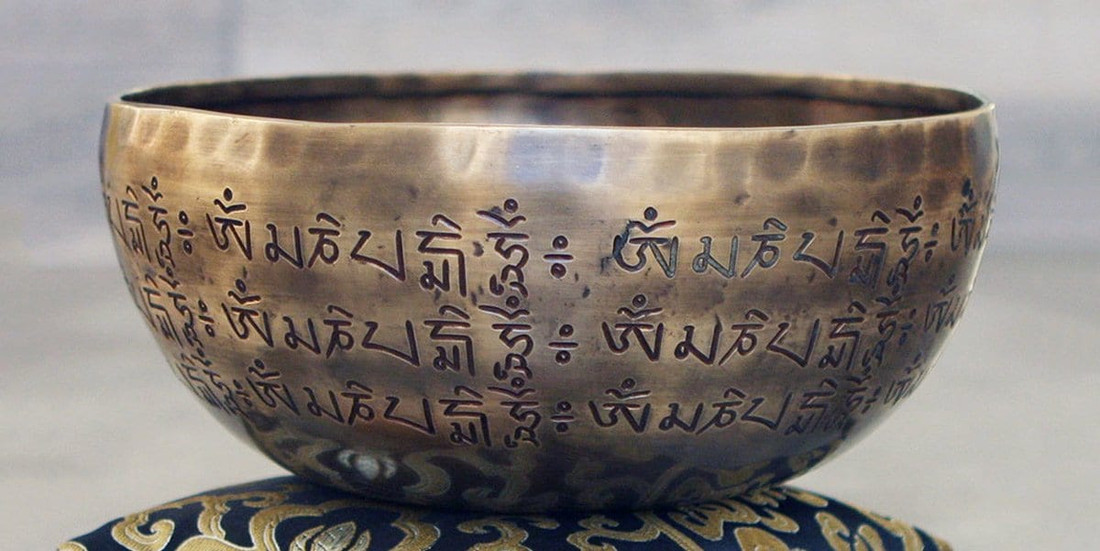 པདྨེ་ཧཱུྃ༔ ཨོཾ་མ་ཎི་པདྨེ་ཧཱུྃ༔ ཨོཾ་མ་ཎི་པདྨེ་ཧཱུྃ༔ ཨོཾ
དྨེ་ཧཱུྃ༔ ཨོཾ་མ་ཎི་པདྨེ་ཧཱུྃ༔ ཨོཾ་མ་ཎི་པདྨེ་ཧཱུྃ༔ ཨོཾ
ཧཱུྃ༔ ཨོཾ་མ་ཎི་པདྨེ་ཧཱུྃ༔ ཨོཾ་མ་ཎི་པདྨེ་ཧཱུྃ༔ ཨོཾ